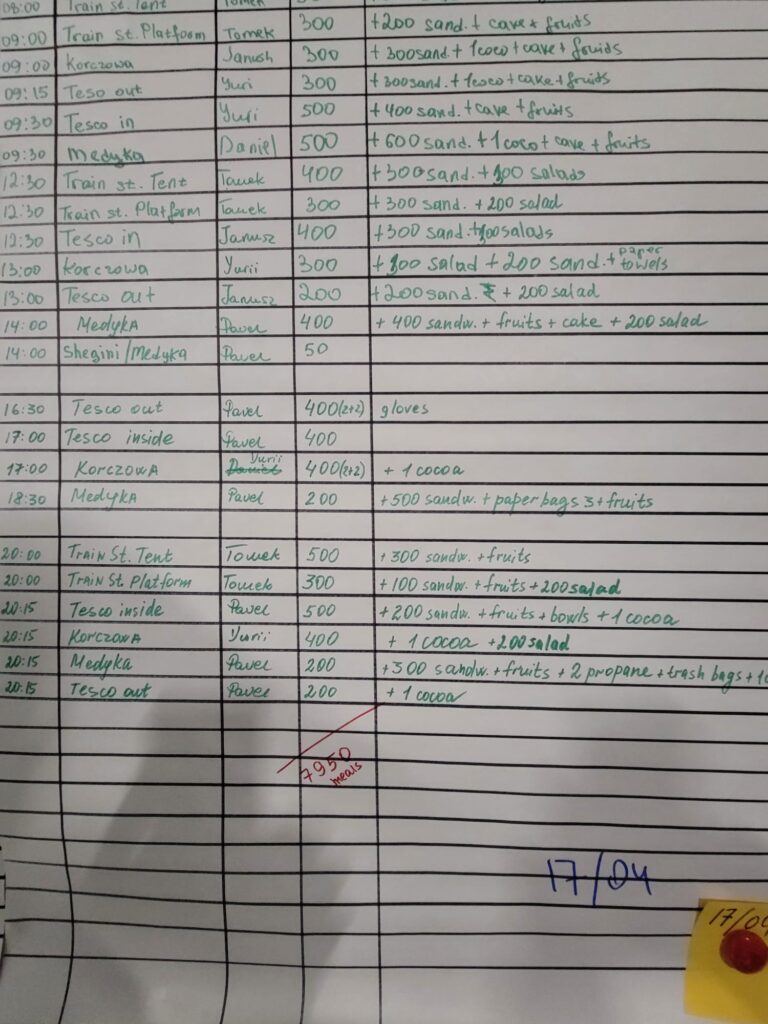 08:00 Train st. Tent Tomek
09:00 Train st. Platform Tomek 300 +200 sand. + cake + fruits
09:00 Korczowa Janush 300 +300 sand + 1 coco + cake + fruids
09:15 Teso out Yuri 300 +300 sand. + 1 coco + cake + fruits
09:30 Tesco in Yuri 500 +400 sand. + cake + fruits
09:30 Medyka Daniel 500 +600 sand. + 1 coco + cake + fruits
12:30 Train st. Tent Tomek 400 +300 sand. + 100 salads
12:30 Train st. Platform Tomek 300 +300 sand. +200 salad
12:30 Tesco in Janusz 400 +300 sand. +100 salads
13:00 Korczowa Yurii 300 +100 salad + 200 sand. + paper towels
13:00 Tesco out Janusz 200 +200 sand. + 200 salad
14:00 Medyka Pavel 400 + 400 sandw. + fruits + cake + 200 salad
14:00 Shegini/Medyka Pavel 50
16:30 Tesco out Pavel 400(2+2) gloves
17:00 Tesco inside Pavel 400
17:00 Korczowa Daniel Yurii 400(2+2) + 1 cocoa
18:30 Medyka Pavel 200 +500 sandw. + paper bags 3 + fruits
20:00 Train St. Tent Tomek 500 +300 sandw. + fruits
20:00 Train St. Platform Tomek 300 +100 sandw. + fruits +200 salad
20:15 Tesco inside Pavel 500 +200 sandw. + fruits + bowls + 1 cocoa
20:15 Korczowa Yurii 400 + 1 cocoa +200 salad
20:15 Medyka Pavel 200 +300 sandw. + fruits + 2 propane + trash bags + 1c
20:15 Tesco out Pavel 200 + 1 cocoa
7950
meals
17/04
17/04